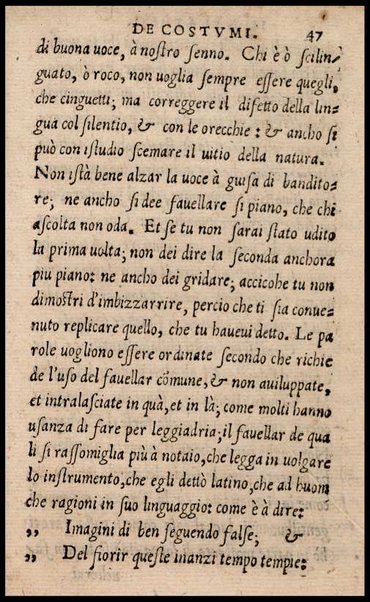 DE COSTVMI. 47
di buona uoce, à nostro senno. Chi è ò scilin-
guato, ò roco, non uoglia sempre essere quegli,
che cinguetti; ma correggere il difetto della lin-
gua col silentio, & con le orecchie: & ancho si
può con istudio scemare il uitio della natura.
Non istà bene alzar la uoce à guisa di bandito-
re; ne ancho si dee fauellare si piano, che chi
ascolta non oda. Et se tu non sarai stato udito
la prima uolta; non dei dire la seconda anchora
piu piano: ne ancho dei gridare; accioche tu non
dimostri d'imbizzarrire, percio che ti sia conue-
nuto replicare quello, che tu haueui detto. Le pa
role uogliono essere ordinate secondo che richie
de l'uso del fauellar cōmune, & non auiluppate,
et intralasciate in quà, et in là; come molti hanno
usanza di fare per leggiadria; il fauellar de qua
li si rassomiglia più à notaio, che legga in uolgare
lo instrumento, che egli dettò latino, che ad huom
che ragioni in suo linguaggio: come è à dire:
„ Imagini di ben seguendo false; &
„ Del fiorir queste inanzi tempo tempie: